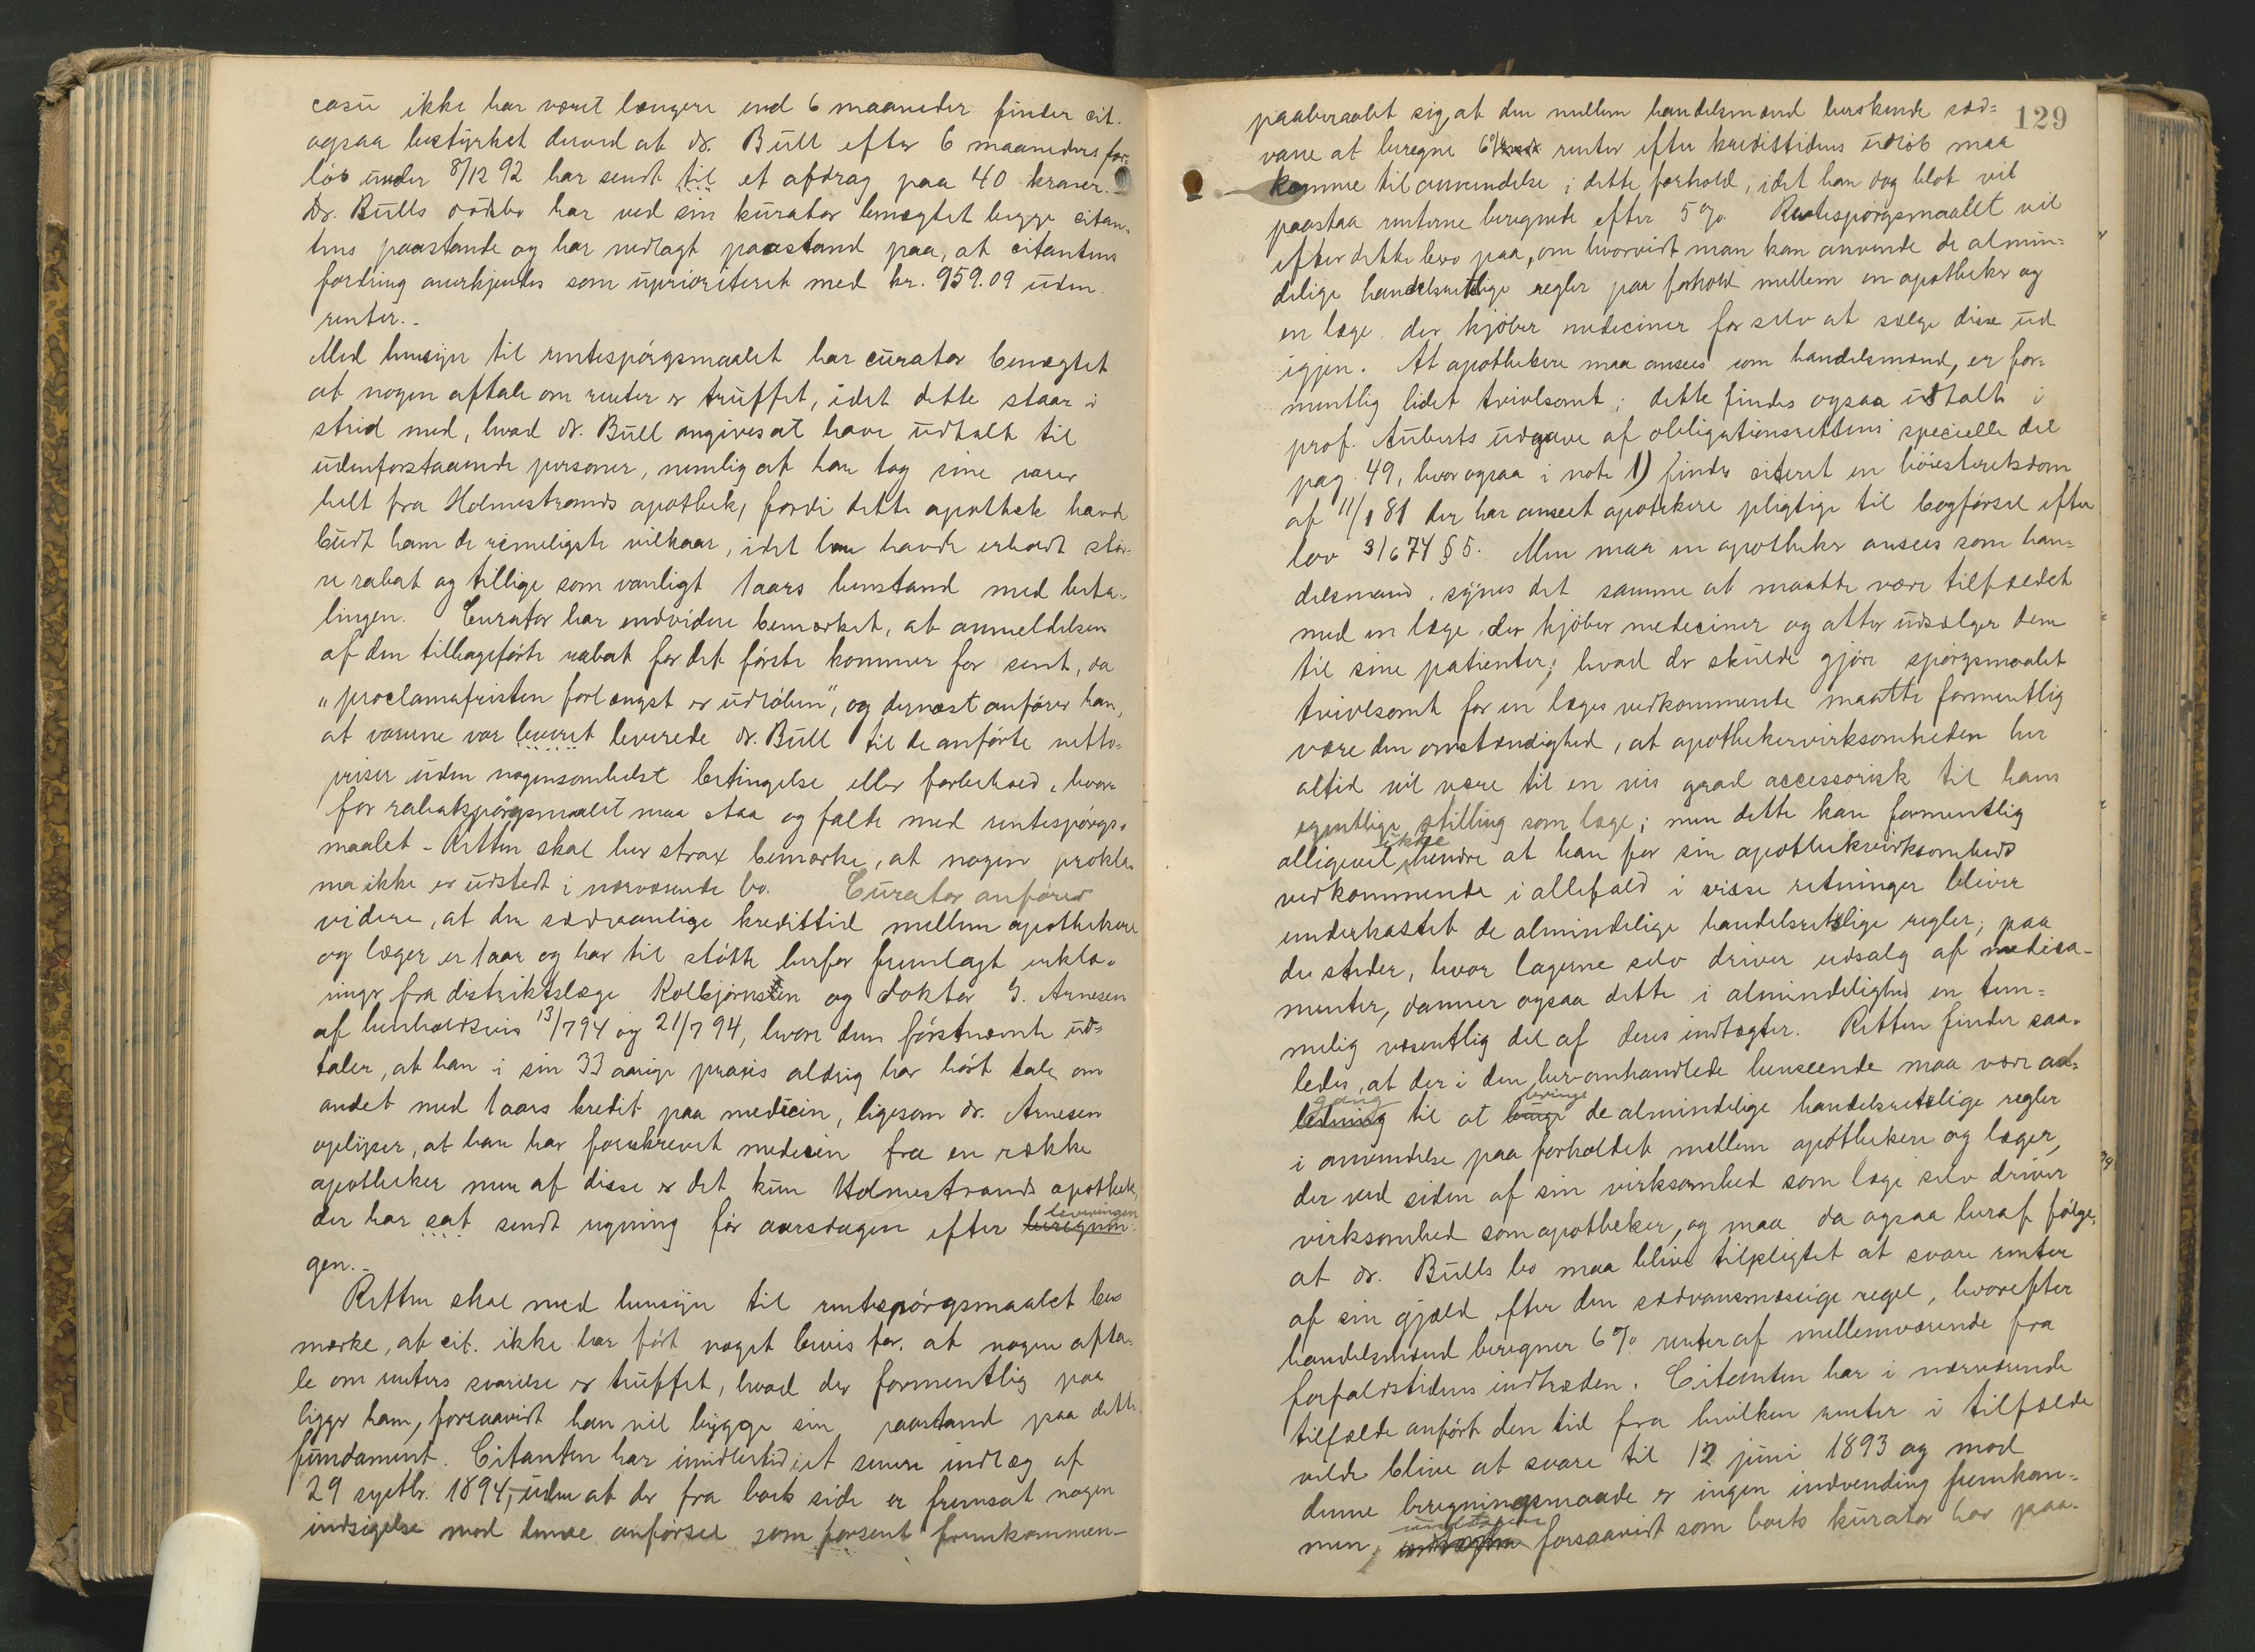 casu ikke har været længere end 6 maaneder finder cit.
ogsaa bestyrket derved at dr. Bull efter 6 maaneders for-
løb under 8/12 92 har sendt til et afdrag paa 40 kroner.
Dr. Bulls dødsbo har ved sin kurator benægtet begge citan-
tens paastande og har nedlagt paastand paa, at citantens
fordring anerkjendes som uprioriteret med kr. 959.09 uden
renter.-
Med hensyn til rentespørgsmaalet har curator benægtet
at nogen aftale om renter er truffet, idet dette staar i
strid med, hvad dr. Bull angives at have udtalt til
udenforstaaende personer, nemlig at han tog sine varer
helt fra Holmestrands apothek, fordi dette apothek havde
budt ham de rimeligste vilkaar, idet han havde erholdt stør-
re rabat og tillige som vanligt 1 aars henstand med beta-
lingen. Curator har endvidere bemærket, at anmeldelsen
af den tilbageførte rabat for det første kommer for sent, da
"proclamafristen forlængst er udløben", og dernæst anfører han,
at varerne var leveret leverede dr. Bull til de anførte netto-
priser uden nogensomhelst betingelse eller forbehold, hvor-
for rabatspørgsmaalet maa staa og falde med rentespørgs-
maalet - Retten skal her strax bemærke, at nogen prokla-
ma ikke er udstedt i nærværende bo. Curator anfører
videre, at den sædvanlige kredittid mellem apothekere
og læger er 1 aar og har til støtte herfor fremlagt erklæ-
ringer fra distriktslæge Kolbjørnsen og doktor G. Arnesen
af henholdsvis 13/7 94 og 21/7 94, hvori den førstnævnte ud-
taler, at han i sin 33 aarige praxis aldrig har hørt tale om
andet end 1 aars kredit paa medicin, ligesom dr. Arnesen
oplyser, at han har forskrevet medicin fra en række
apotheker men af disse er det kun Holmestrands apothek,
der har sat sendt regning før aarsdagen efter leveringen beregnin-
gen.-
Retten skal med hensyn til rentespørgsmaalet be-
mærke, at cit. ikke har ført noget bevis for, at nogen afta-
le om renters svarelse er truffet, hvad der formentlig paa-
ligger ham, forsaavidt han vil bygge sin paastand paa dette
fundament. Citanten har imidlertid i et senere indlæg af
29 septbr. 1894, uden at der fra boets side er fremsat nogen
indsigelse mod denne anførsel som forsent fremkommen-
129
paaberaabt sig, at den mellem handelsmænd herskende sæd-
vane at beregne 6% renter efter kredittidens udløb maa
komme til anvendelse i dette forhold, idet han dog blot vil
paastaa renterne beregnede efter 5%. Rentespørgsmaalet vil
efter dette bero paa, om hvorvidt man kan anvende de almin-
delige handelsretlige regler paa forhold mellem en apotheker og
en læge, der kjøber mediciner for selv at sælge disse ud
igjen. At apothekere maa ansees som handelsmænd, er for-
mentlig lidet tvivlsomt; dette findes ogsaa udtalt i
prof. Auberts udgave af obligationsrettens specielle del
pag. 49, hvor ogsaa i note 1) findes citeret en høiesteretsdom
af 11/1 81 der har anseet apothekere pligtige til bogførsel efter
lov 3/6 74 § 5. Men maa en apotheker ansees som han-
delsmand, synes det samme at maatte være tilfældet
med en læge, der kjøber mediciner og atter udsælger dem
til sine patienter; hvad der skulde gjøre spørgsmaalet
tvivlsomt for en læges vedkommende maatte formentlig
være den omstændighed, at apothekervirksomheden her
altid vil være til en vis grad accessorisk til hans
egentlige stilling som læge; men dette kan formentlig
alligevel ikke hindre at han for sin apothekvirksomheds
vedkommende i allefald i visse retninger bliver
underkastet de almindelige handelsretslige regler; paa
de steder, hvor lægerne selv driver udsalg af medica-
menter, danner ogsaa dette i almindelighed en tem-
melig væsentlig del af deres indtægter. Retten finder saa-
ledes, at der i den heromhandlede henseende maa være ad-
gang ledning til at bringe de almindelige handelsretslige regler
i anvendelse paa forholdet mellem apothekere og læger,
der ved siden af sin virksomhed som læge selv driver
virksomhed som apotheker, og maa da ogsaa heraf følge,
at dr. Bulls bo maa blive tilpligtet at svare renter
af sin gjæld efter den sædvansmæssige regel, hvorefter
handelsmænd beregner 6% renter af mellemværende fra
forfaldstidens indtræden. Citanten har i nærværende
tilfælde anført den tid fra hvilken renter i tilfælde
vilde blive at svare til 12 juni 1893 og mod
denne beregningsmaade er ingen indvending fremkom-
men, undtagen forsaavidt som boets kurator har paa-